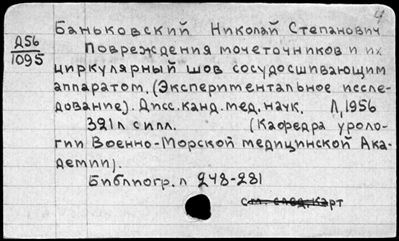 4
Баньковский Николай Степанович
Д56
1095
Повреждения мочеточников и их
циркулярный шов сосудосшивающим
аппаратом. (Экспериментальное иссле-
дование). Дисс. канд. мед. наук. Л, 1956
321 л с илл. (Кафедра уроло-
гии Военно-Морской медицинской Ака-
демии).
Библиогр. л 248-281
См. след. карт